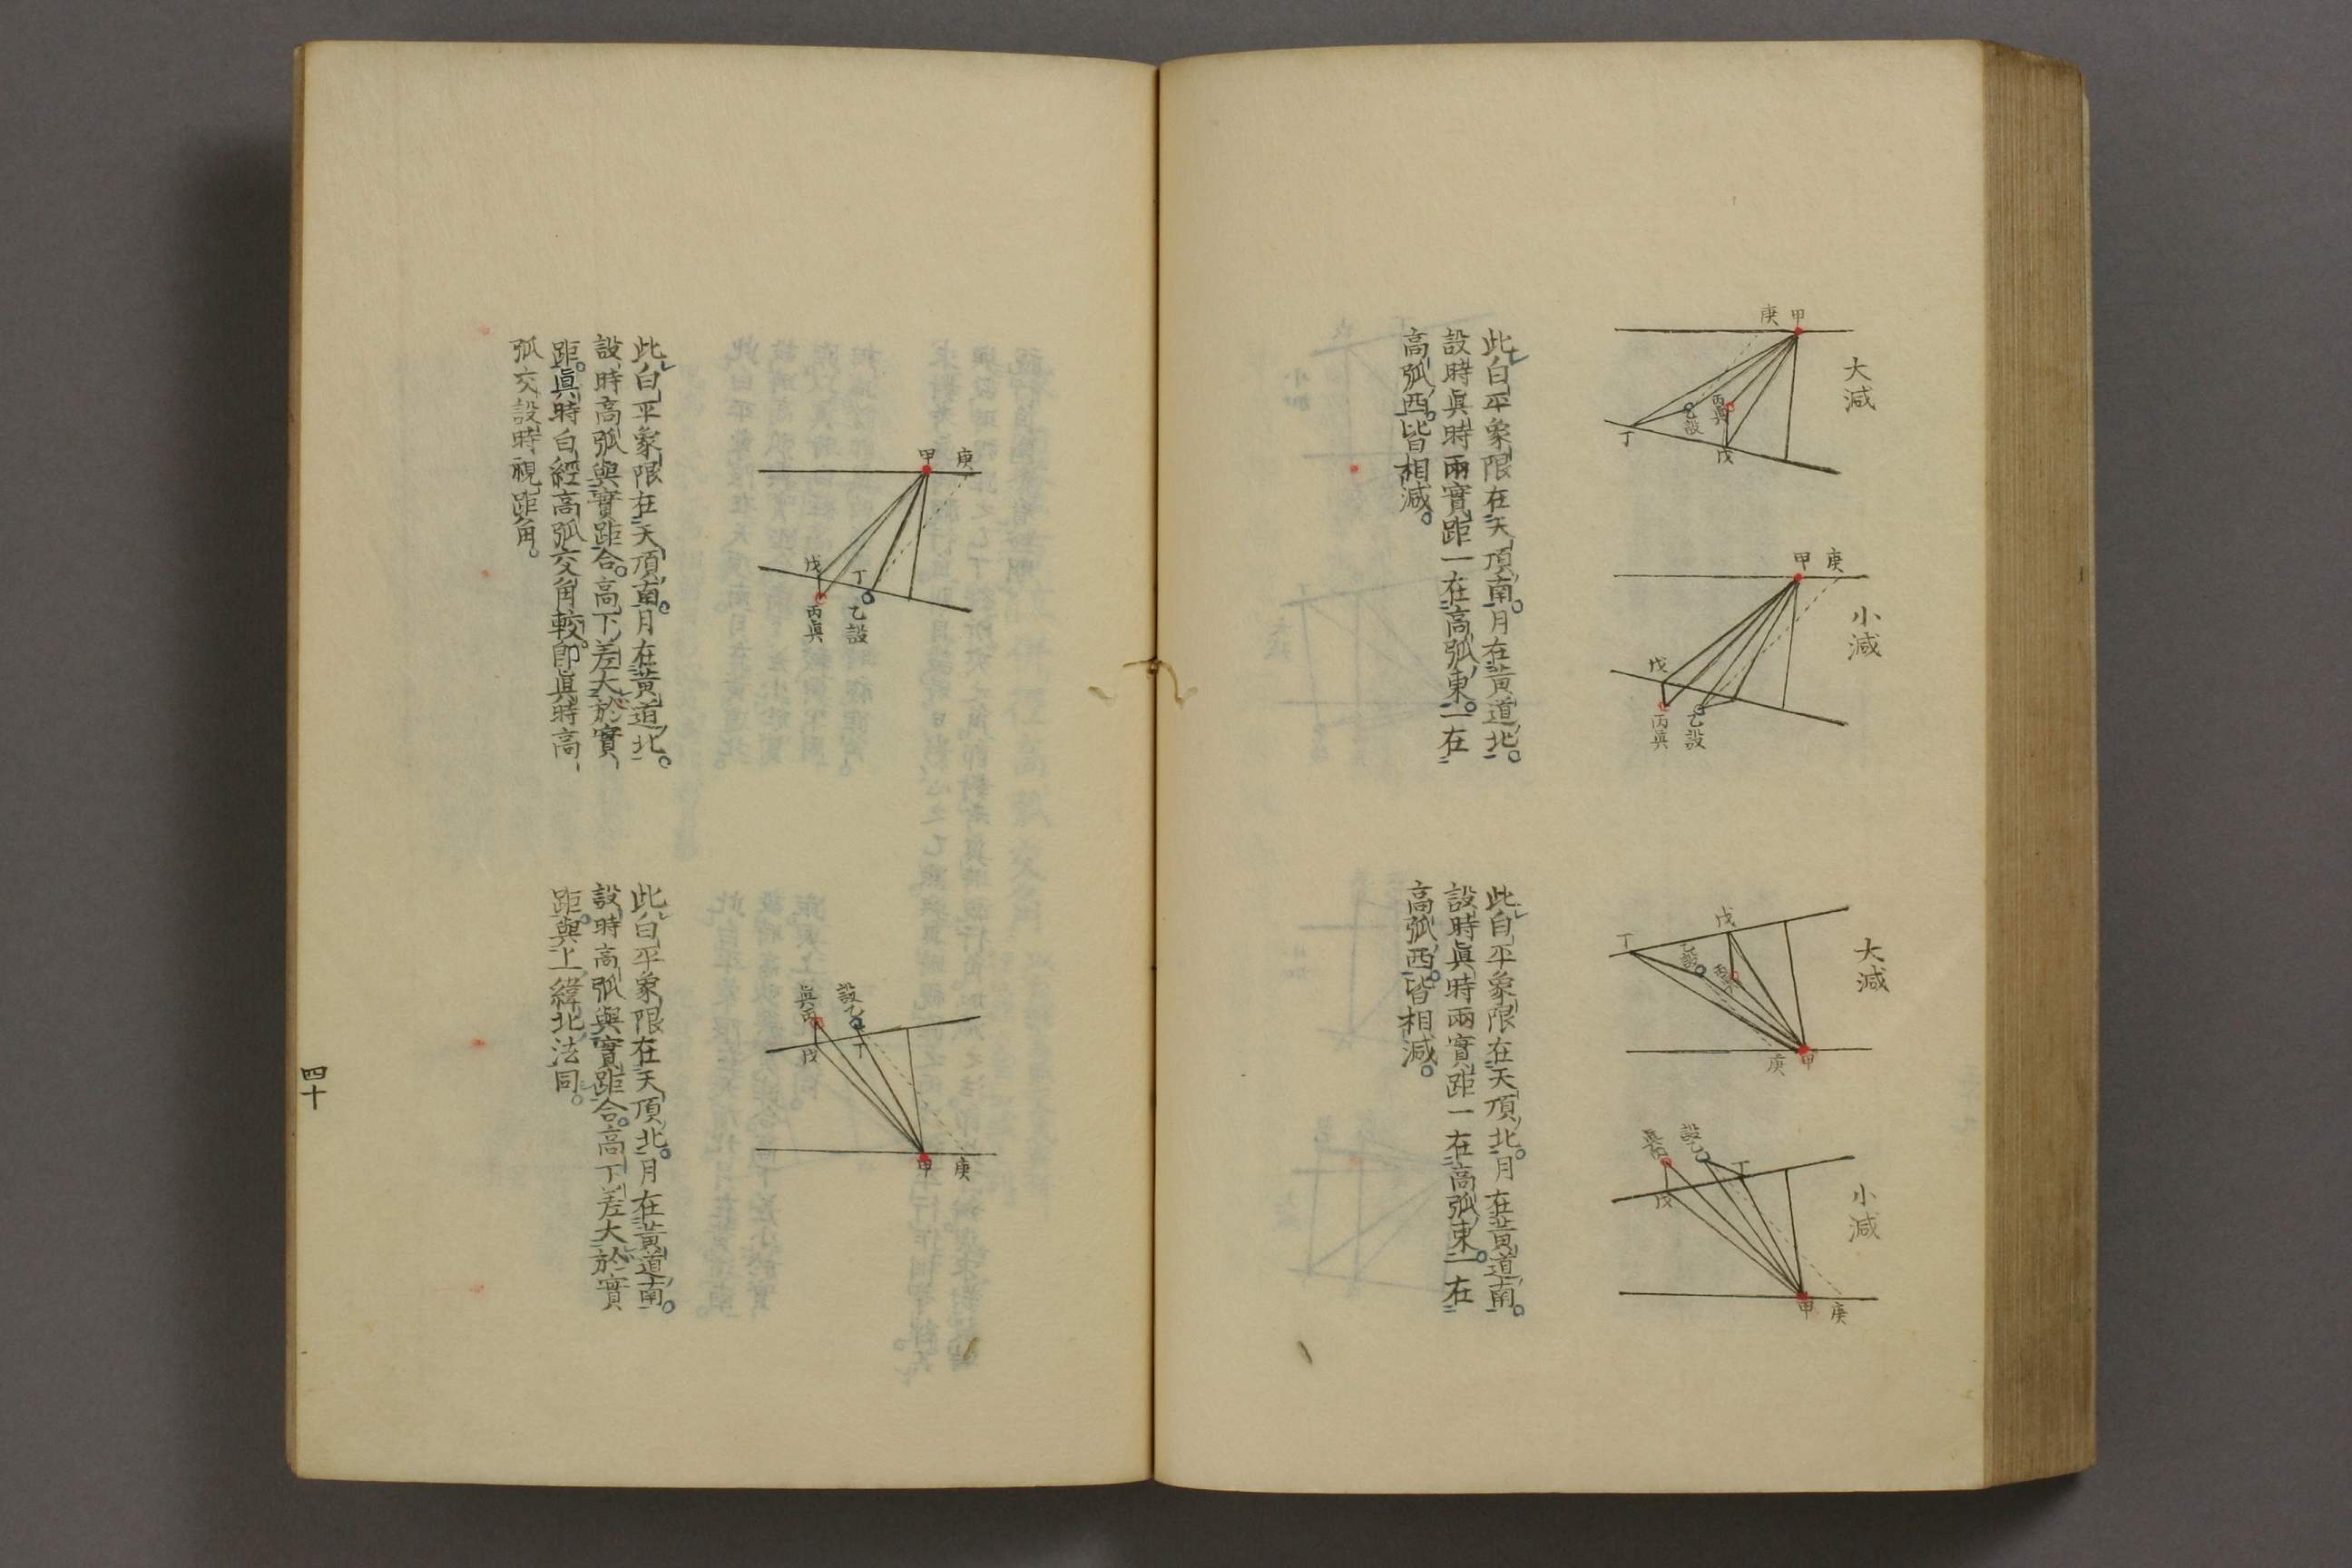 大減
庚甲
丁
乙設
丙眞
戊
小減
甲庚
戊
丙眞
乙設
此白平象限在天頂南。月在黃道北。
設時眞時兩實距一在高弧東。一在
高弧西。皆相減。
大減
戊
丁
乙設
丙
庚甲
小減
設乙
丁
戊
甲庚
此白平象限在天頂北。月在黃道南。
設時眞時兩實距一在高弧東。一在
高弧西。皆相減。
甲庚
戊
丁
丙眞
乙設
此白平象限在天頂南。月在黃道北。
設時高弧與實距合。高下差大於實
距。眞時白經高弧交角較。卽眞時高
弧交設時視距角。
設乙
眞丙
丁
戊
甲庚
此白平象限在天頂北。月在黃道南。
設時高弧與實距合。高下差大於實
距。與上緯北法同。
四十